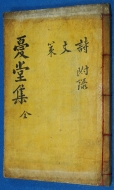 憂堂集 全
詩 文 策 附錄